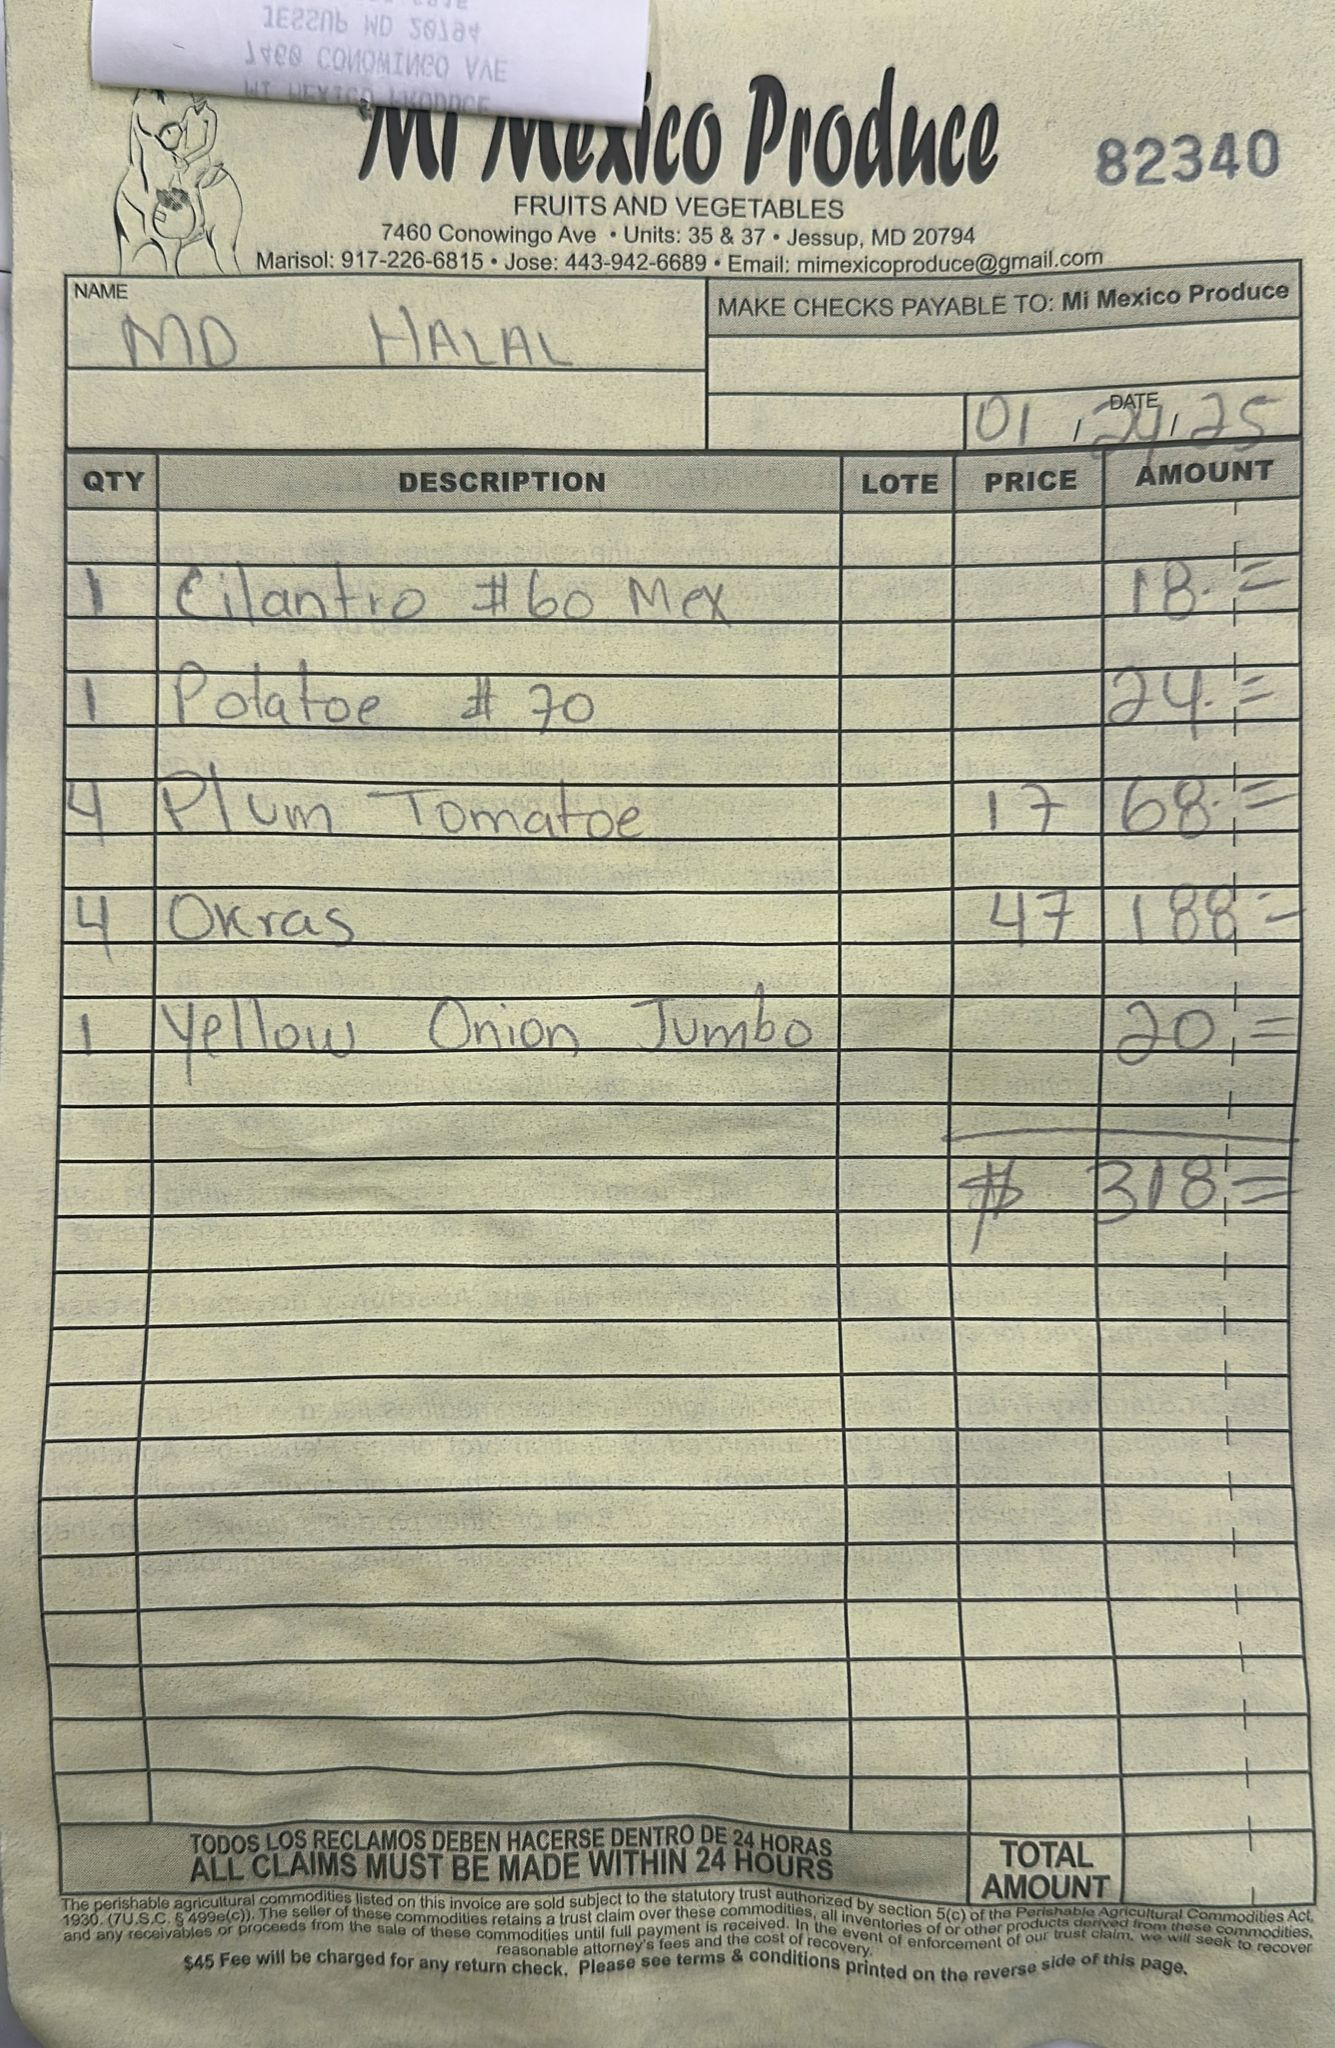 JESSUP MD 20794
7460 CONOMINGO AVE
MI MEXICO PRODUCE
Mi Mexico Produce
82340
FRUITS AND VEGETABLES
7460 Conowingo Ave • Units: 35 & 37 • Jessup, MD 20794
Marisol: 917-226-6815 • Jose: 443-942-6689 • Email: mimexicoproduce@gmail.com
NAME
MD HALAL
MAKE CHECKS PAYABLE TO: Mi Mexico Produce
DATE
01 / 24 / 25
QTY DESCRIPTION LOTE PRICE AMOUNT
1 Cilantro #60 Mex 18.=
1 Potatoe # 70 24.=
4 Plum Tomatoe 17 68.=
4 Okras 47 188=
1 Yellow Onion Jumbo 20.=
$ 318=
TODOS LOS RECLAMOS DEBEN HACERSE DENTRO DE 24 HORAS
ALL CLAIMS MUST BE MADE WITHIN 24 HOURS
TOTAL
AMOUNT
The perishable agricultural commodities listed on this invoice are sold subject to the statutory trust authorized by section 5(c) of the Perishable Agricultural Commodities Act,
1930. (7U.S.C. § 499e(c)). The seller of these commodities retains a trust claim over these commodities, all inventories of or other products derived from these commodities,
and any receivables or proceeds from the sale of these commodities until full payment is received. In the event of enforcement of our trust claim, we will seek to recover
reasonable attorney's fees and the cost of recovery.
$45 Fee will be charged for any return check. Please see terms & conditions printed on the reverse side of this page.